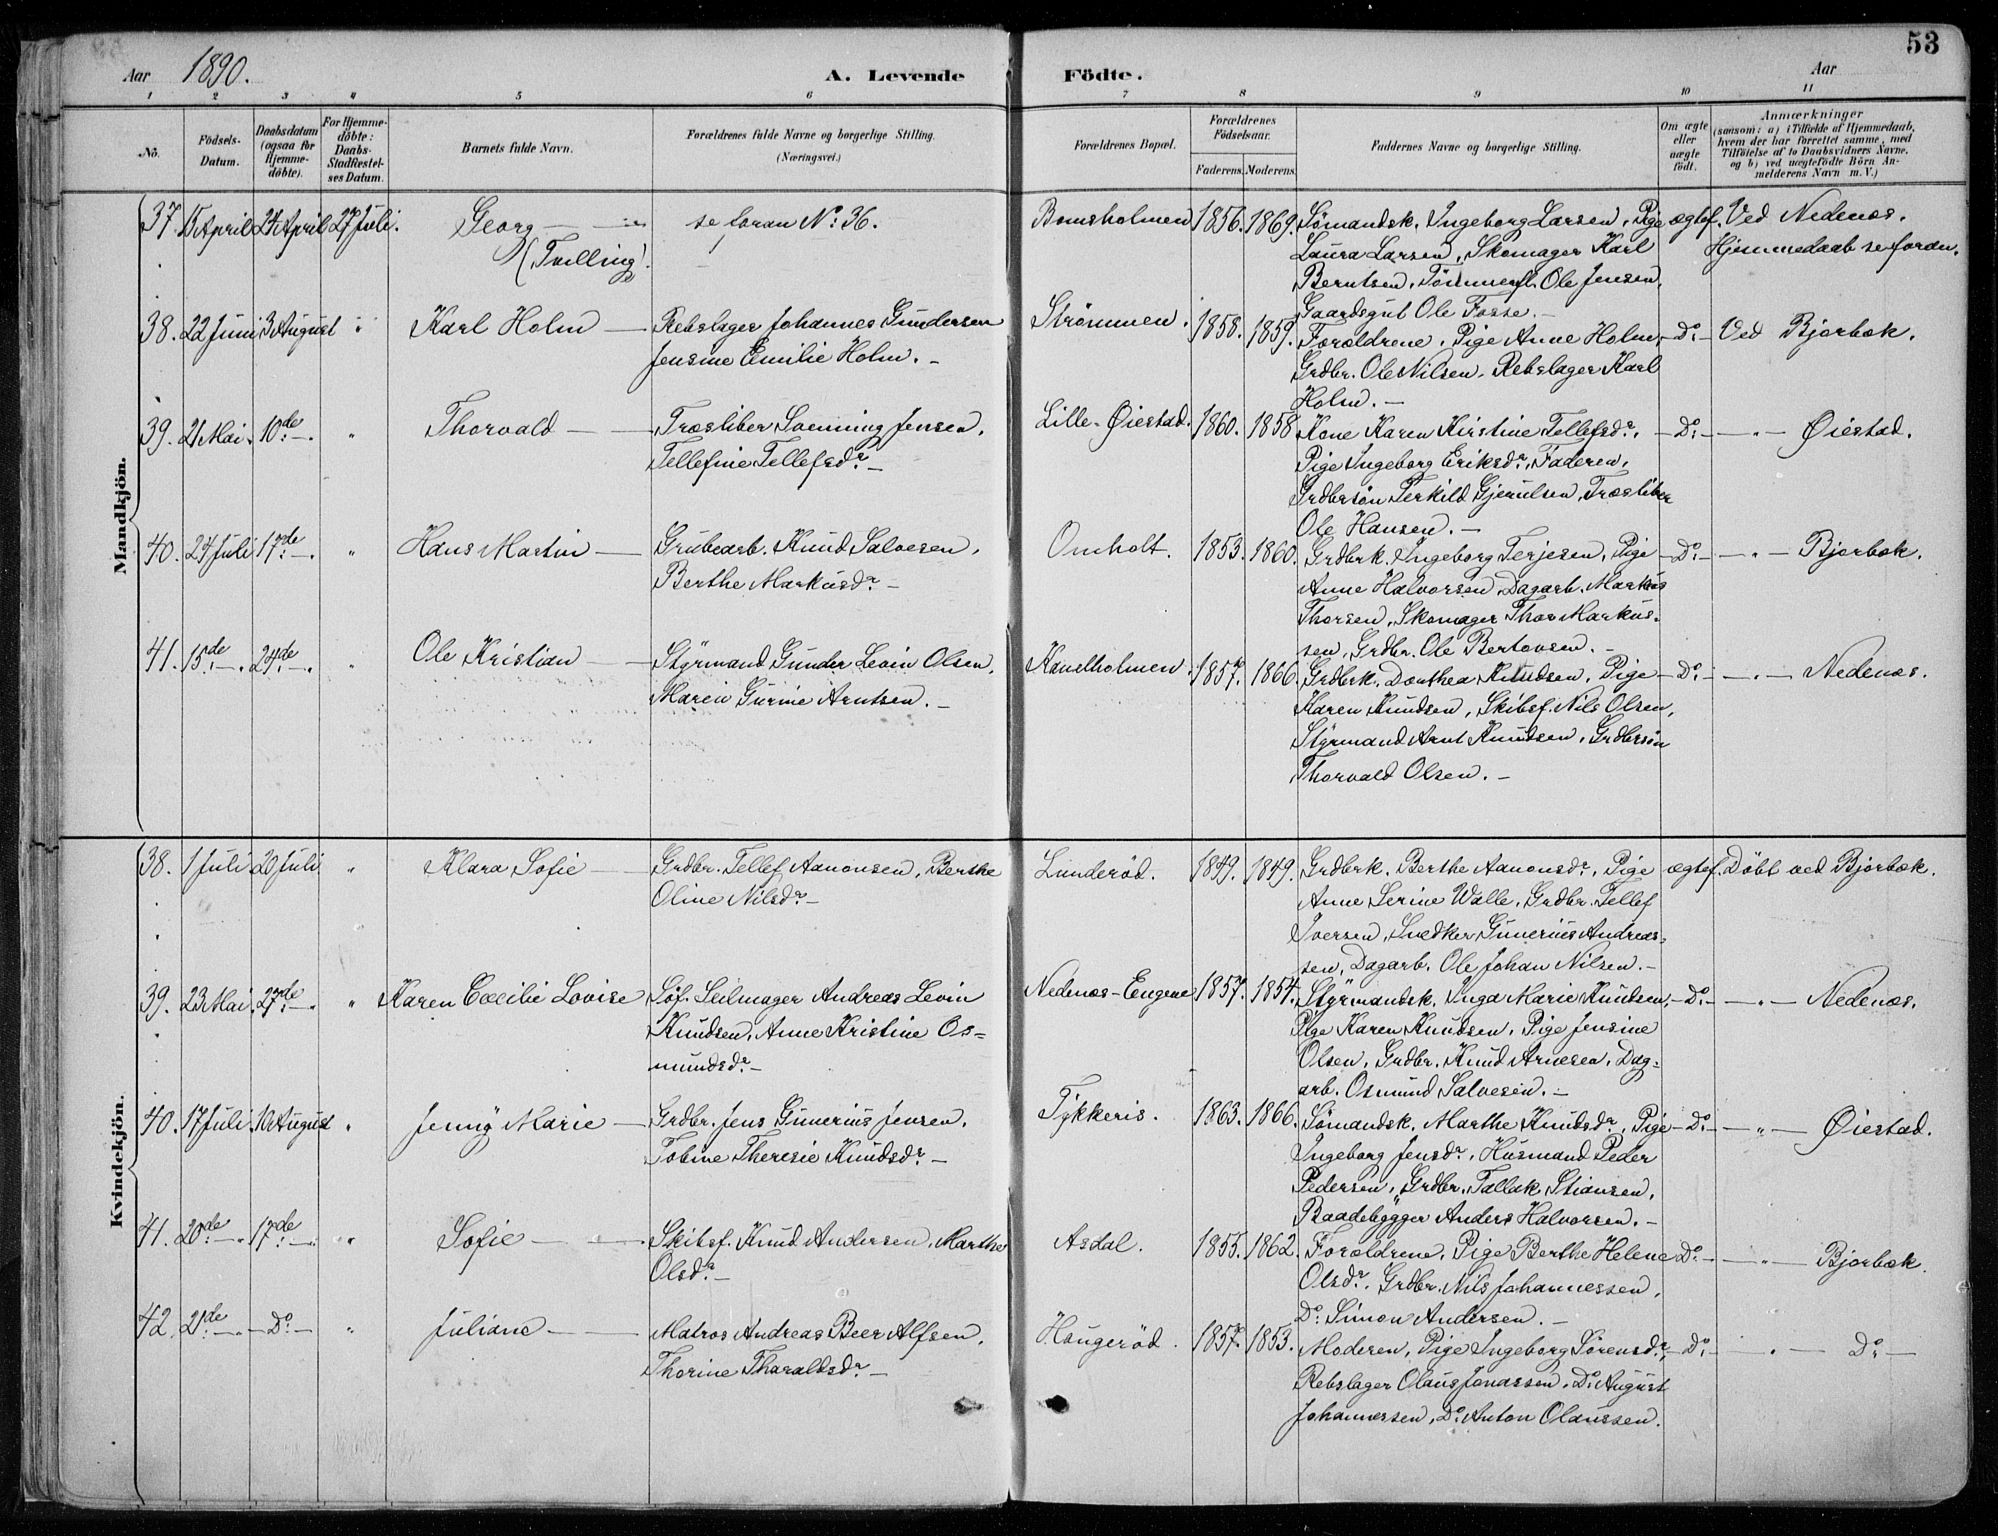 53
Aar 1890. A. Levende Födte. Aar
1 2 3 4 5 6 7 8 9 10 11
No. Födsels-Datum. Daabsdatum (ogsaa for Hjemme-döbte). For Hjemme-döbte: Daabs-Stadfæstel-ses Datum. Barnets fulde Navn. Forældrenes fulde Navne og borgerlige Stilling. (Næringsvei.) Forældrenes Bopæl. Forældrenes Födselsaar. Faderens. Moderens. Faddernes Navne og borgerlige Stilling. Om ægte eller uægte födt. Anmærkninger (saasom: a) i Tilfælde af Hjemmedaab, hvem der har forrettet samme, med Tilföielse af to Daabsvidners Navne, og b) ved uægtefödte Börn An-melderens Navn m. V.)
Mandkjön.
37. 15 April 24 April 27 Juli. Georg — se foran No: 36. Bomsholmen 1856. 1869. Sømandsk. Ingeborg Larsen, Pige ægtef. Ved Nedenæs.
(Tvilling). Laura Larsen, Skomager Karl Hjemmedaab se foran.
Berntsen, Tømmerm. Ole Jensen,
Gaardsgut Ole Fosse. —
38. 22 Juni 3 August " Karl Holm — Rebslager Johannes Gundersen Strømmen. 1858. 1859. Forældrene, Pige Anne Holm, — Do: — Ved Bjorbæk.
Jensine Emilie Holm. — Grdbr. Ole Nilsen, Rebslager Karl
Holm. —
39. 21 Mai. 10de —. " Thorvald — Træsliber Svenning Jensen, Lille-Øiestad. 1860. 1858 Kone Karen Kirstine Tellefsdr., — Do: — " — Øiestad.
Tellefine Tellefsdr. — Pige Ingeborg Eriksdr., Faderen,
Grdbrsøn Terkild Gjerulsen, Træsliber
Ole Hansen. —
40. 24 Juli 17de —. " Hans Martin — Grubearb. Knud Salvesen, Omholt. 1853. 1860. Grdbrk. Ingeborg Terjesen, Pige — Do: — " — Bjorbæk.
Berthe Markusdr. — Anne Halvorsen, Dagarb. Markus
Thorsen, Skomager Thor Markus-
sen, Grdbr. Ole Bertovsen. —
41. 15de —. 24de —. " Ole Kristian — Styrmand Gunder Levin Olsen, Kavelholmen. 1857. 1866. Grdbrk. Dorthea Knudsen, Pige — Do: — " — Nedenæs.
Maren Gurine Arntsen. — Karen Knudsen, Skibsf. Nils Olsen,
Styrmand Arnt Knudsen, Grdbrsøn
Thorvald Olsen. —
Kvindekjön.
38. 1 Juli 20 Juli. " Klara Sofie — Grdbr. Tellef Aanonsen, Berthe Lunderød. 1849. 1849. Grdbrk. Berthe Aanonsdr., Pige ægtef. Døbt ved Bjorbæk.
Oline Nilsdr. — Anne Serine Walle, Grdbr. Tellef
Iversen, Snedker Gunerius Andreas-
sen, Dagarb. Ole Johan Nilsen. —
39. 23 Mai. 27de —. " Karen Cæcilie Lovise Søf. Seilmager Andreas Levin Nedenæs-Engene 1857. 1854. Styrmandsk. Inga Marie Knudsen, — Do: — " — Nedenæs.
Knudsen, Anne Kristine Os- Pige Karen Knudsen, Pige Jensine
mundsdr. — Olsen, Grdbr. Knud Arnesen, Dag-
arb. Osmund Salvesen. —
40. 17 Juli. 10 August " Jenny Marie — Grdbr. Jens Gunerius Jensen, Tykkeris. 1863. 1866. Sømandsk. Marthe Knudsdr., Pige — Do: — " — Øiestad.
Tobine Theresie Knudsdr. — Ingeborg Jensdr., Husmand Peder
Pedersen, Grdbr. Tallak Stiansen,
Baadebygger Anders Halvorsen. —
41. 20de —. 17de —. " Sofie — Skibsf. Knud Andersen, Marthe Asdal. 1855. 1862. Forældrene, Pige Berthe Helene Do: — " — Bjorbæk.
Olsdr. — Olsdr., Grdbr. Nils Johannessen,
Do: Simon Andersen. —
42. 21de —. Do: — " Juliane — Matros Andreas Beer Alfsen, Haugerød. 1857. 1853. Moderen, Pige Ingeborg Sørensdr., — Do: — " — Do: —
Thorine Tharaldsdr. — Rebslager Olaus Jonassen, Do: August
Johannessen, Do: Anton Olaussen.